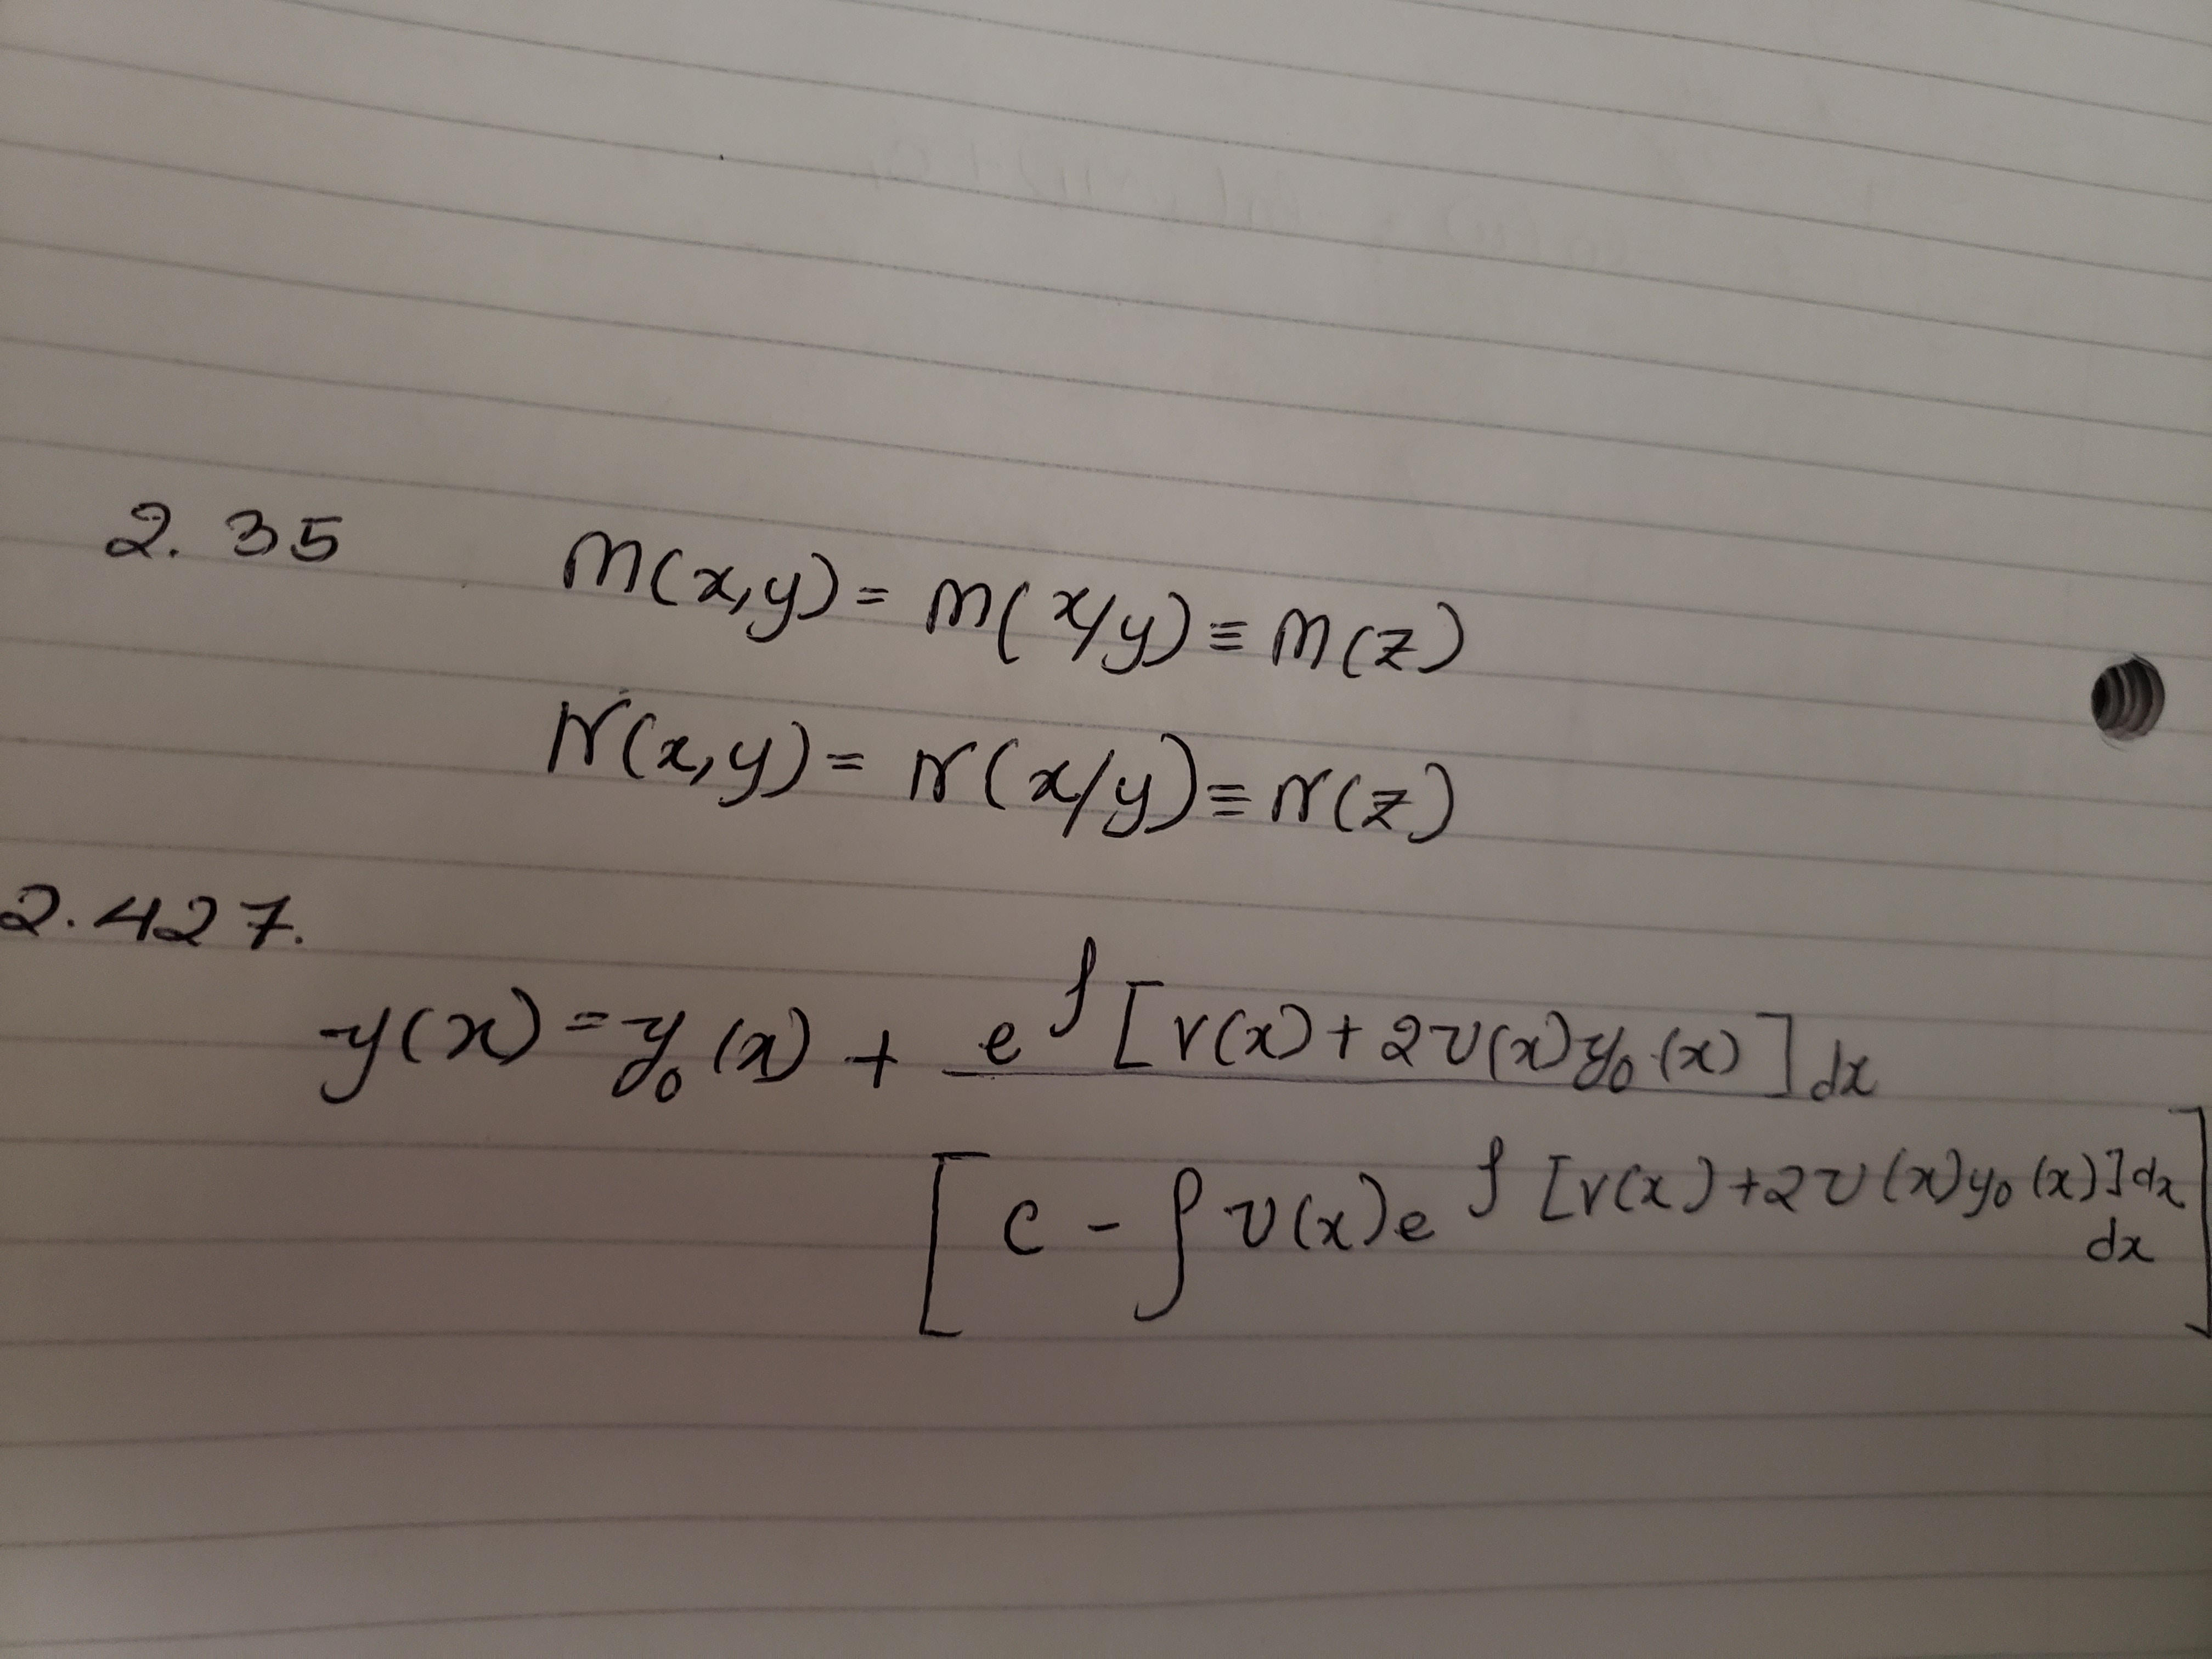 2.35 M(x,y) = M(x/y) ≡ M(z)
N(x,y) = N(x/y) ≡ N(z)
2.427.
y(x) = y₀(x) + e^∫[v(x) + 2v(x)y₀(x)]dx
[c - ∫v(x)e^∫[v(x) + 2v(x)y₀(x)]dx dx]